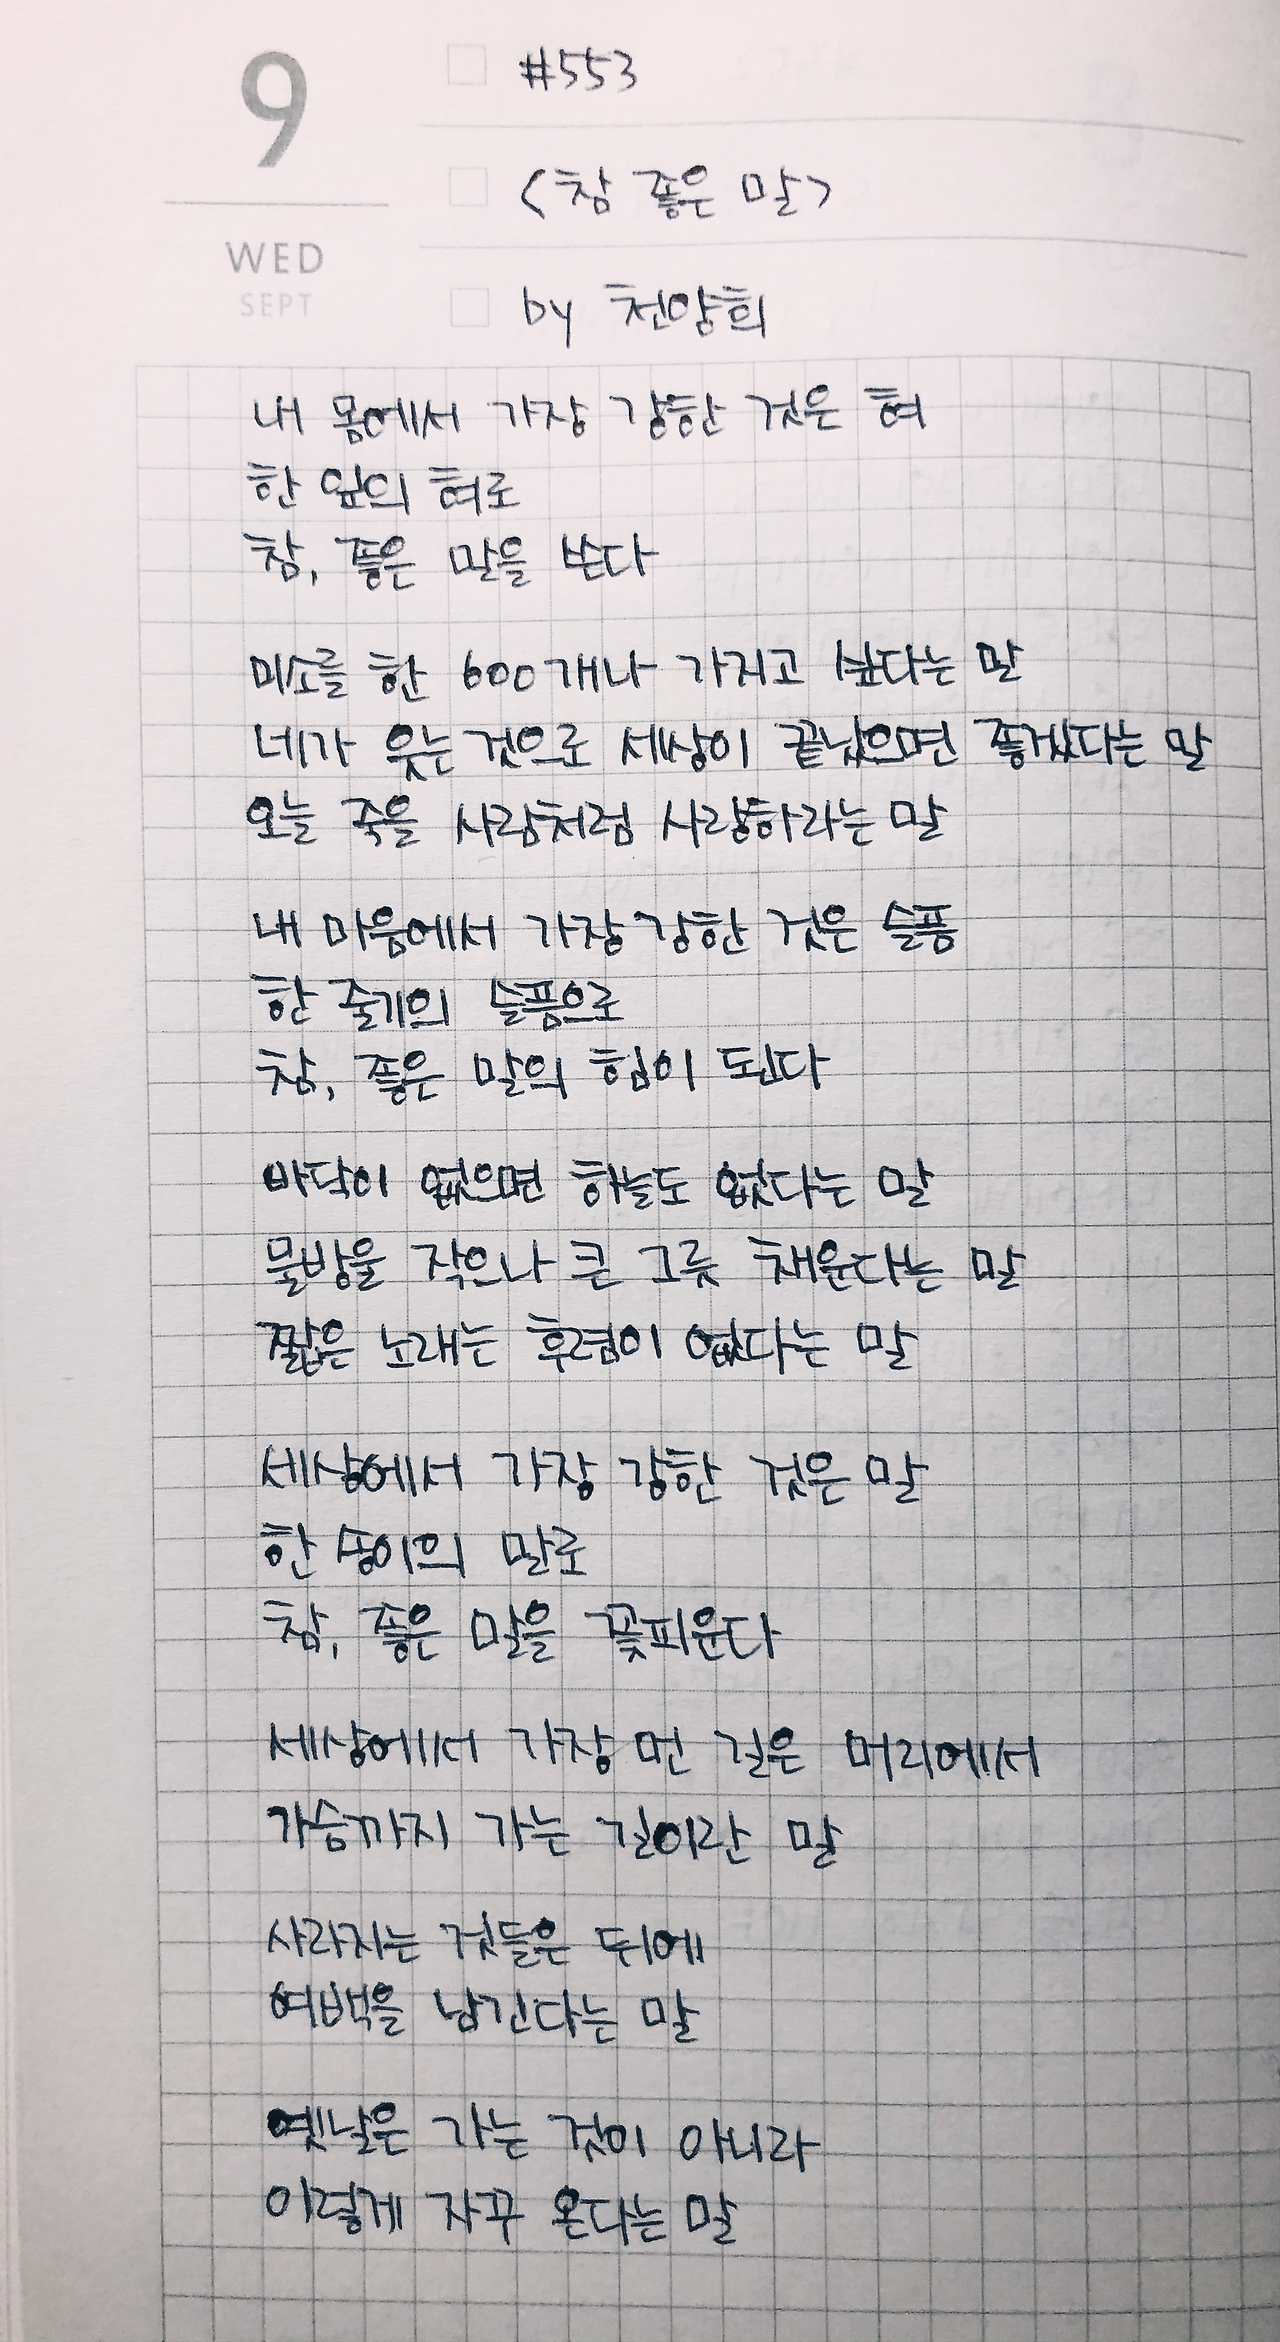 9
WED
SEPT
#553
<참 좋은 말>
by 천양희
내 몸에서 가장 강한 것은 혀
한 잎의 혀로
참, 좋은 말을 쓴다
미소를 한 600개나 가지고 싶다는 말
네가 웃는 것으로 세상이 끝났으면 좋겠다는 말
오늘 죽을 사람처럼 사랑하라는 말
내 마음에서 가장 강한 것은 슬픔
한 줄기의 슬픔으로
참, 좋은 말의 힘이 된다
바닥이 없으면 하늘도 없다는 말
물방울 작으나 큰 그릇 채운다는 말
짧은 노래는 후렴이 없다는 말
세상에서 가장 강한 것은 말
한 송이의 말로
참, 좋은 말을 꽃피운다
세상에서 가장 먼 길은 머리에서
가슴까지 가는 길이란 말
사라지는 것들은 뒤에
여백을 남긴다는 말
옛날은 가는 것이 아니라
이렇게 자꾸 온다는 말